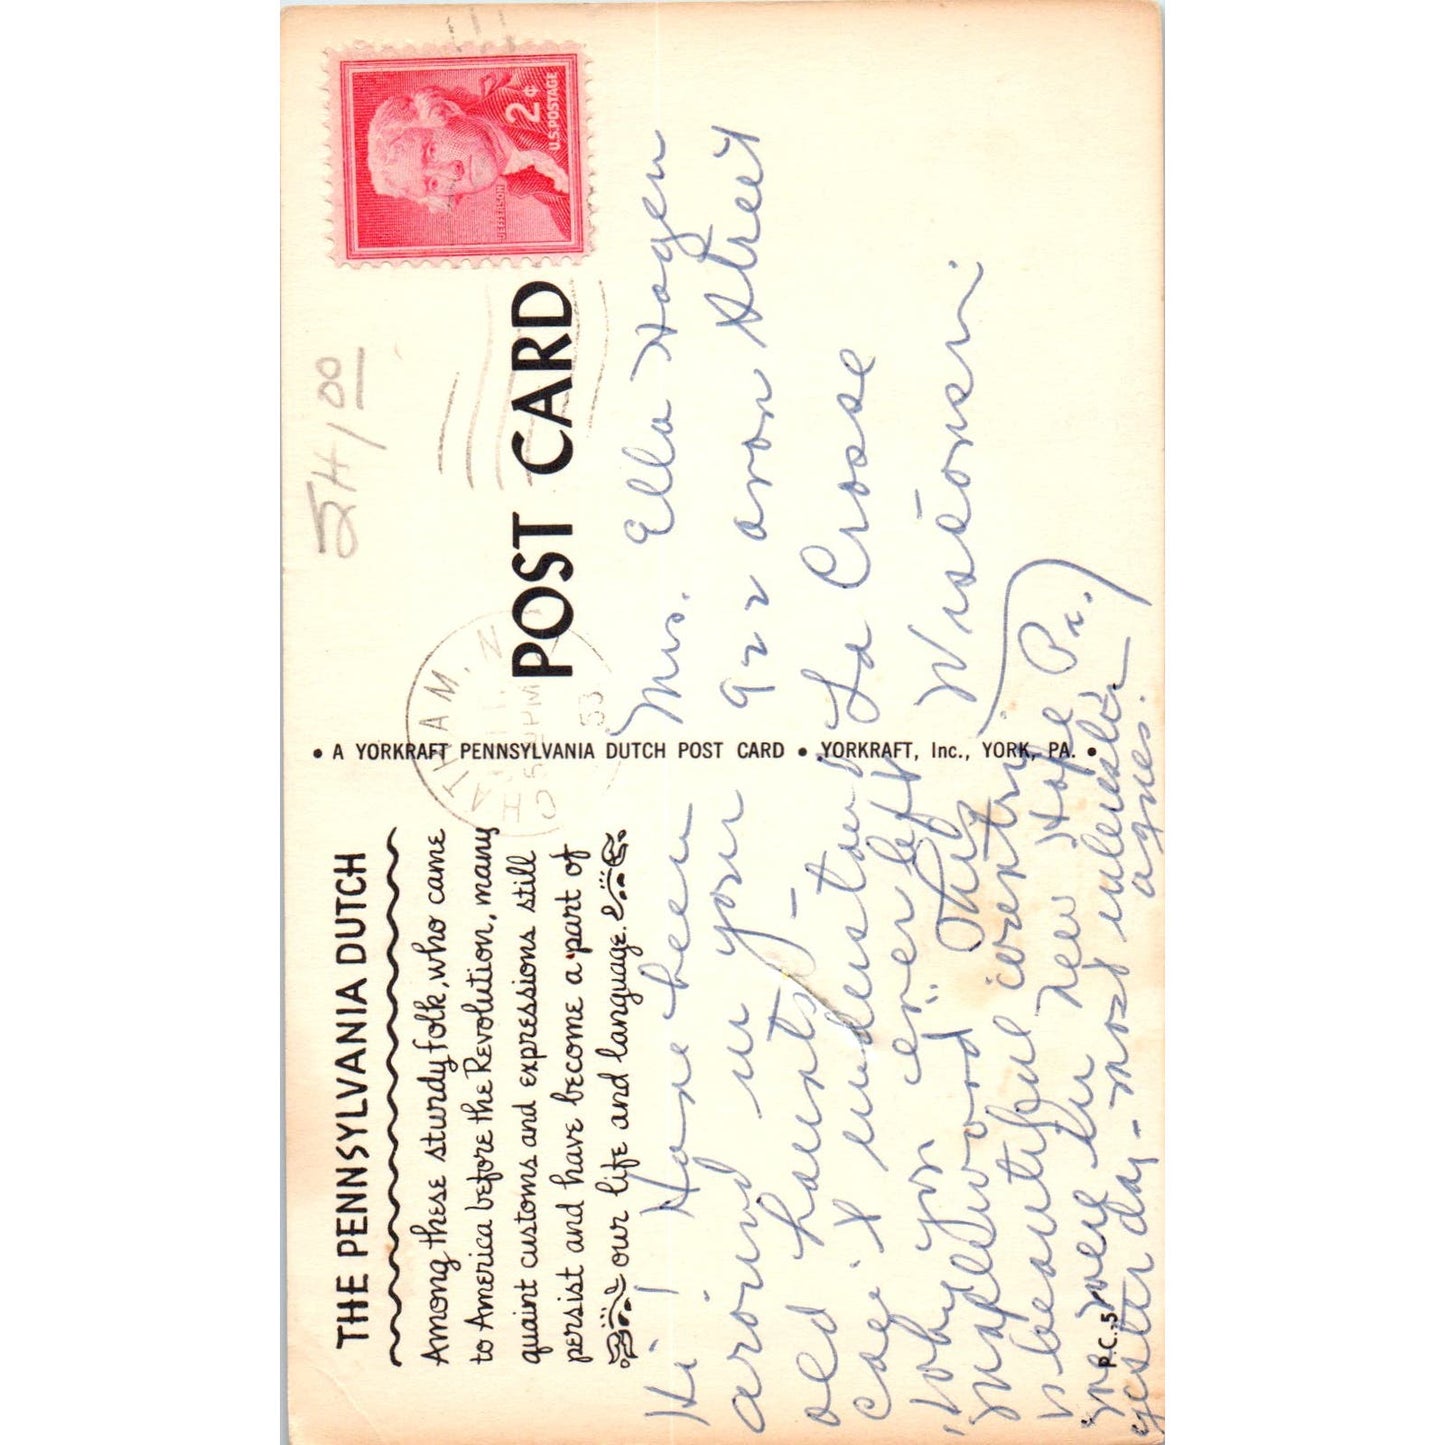 THE PENNSYLVANIA DUTCH
Among these sturdy folk, who came
to America before the Revolution, many
quaint customs and expressions still
persist and have become a part of
our life and language.
Hi! Have been
around in your
old haunts -
can't understand
"why you ever left
Maplewood". This
is beautiful country.
We were in New Hope Pa.
yesterday - most interesting
Agnes.
P.C. 5
• A YORKRAFT PENNSYLVANIA DUTCH POST CARD • YORKRAFT, Inc., YORK, PA. •
5H/00
CHATHAM, N
5 PM
POST CARD
JEFFERSON
2¢
U.S. POSTAGE
Mrs. Ella Hagen
922 Avon Street
La Crosse
Wisconsin